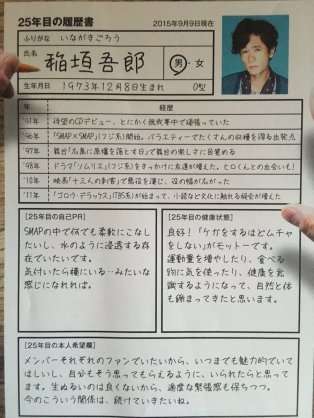 25年目の履歴書
2015年9月9日現在
ふりがな いながきごろう
氏名 稲垣吾郎 男・女
生年月日 1973年12月8日生まれ O型
年 経歴
'91年 待望のCDデビュー。とにかく無我夢中で頑張っていた
'96年 「SMAP×SMAP」(フジ系)開始。バラエティーでたくさんの収穫を得る出発点
'97年 舞台「広島に原爆を落とす日」で舞台の楽しさに目覚める
'98年 ドラマ「ソムリエ」(フジ系)をきっかけに友達が増えた。ヒロくんとの出会いも!
'10年 映画「十三人の刺客」で悪役を演じ、役の幅が広がった
'11年 「ゴロウ・デラックス」(TBS系)が始まって、小説など文化に触れる機会が増えた
[25年目の自己PR]
SMAPの中で何でも柔軟にこなし
たいし、水のように浸透する存
在でいたいです。
気付いたら横にいる…みたいな
感じになれれば。
[25年目の健康状態]
良好!「ケガをするほどムチャ
をしない」がモットーです。
運動量を増やしたり、食べる
物に気を使ったり、健康を意
識するようになって、自然と体
も締まってきたと思います。
[25年目の本人希望欄]
メンバーそれぞれのファンでいたいから、いつまでも魅力的でいて
ほしいし、自分もそう思ってもらえるように、いられたらと思って
ます。生ぬるいのは良くないから、適度な緊張感も保ちつつ。
今のこういう関係は、続けていきたいね。